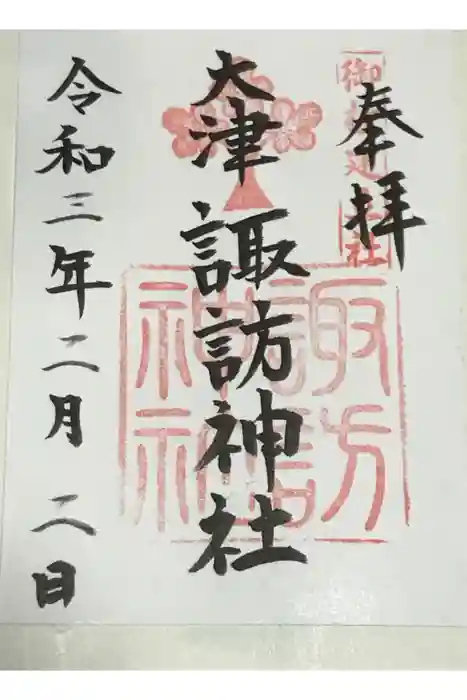 奉拝
大津
諏訪神社
諏訪
神社
令和三年二月二日